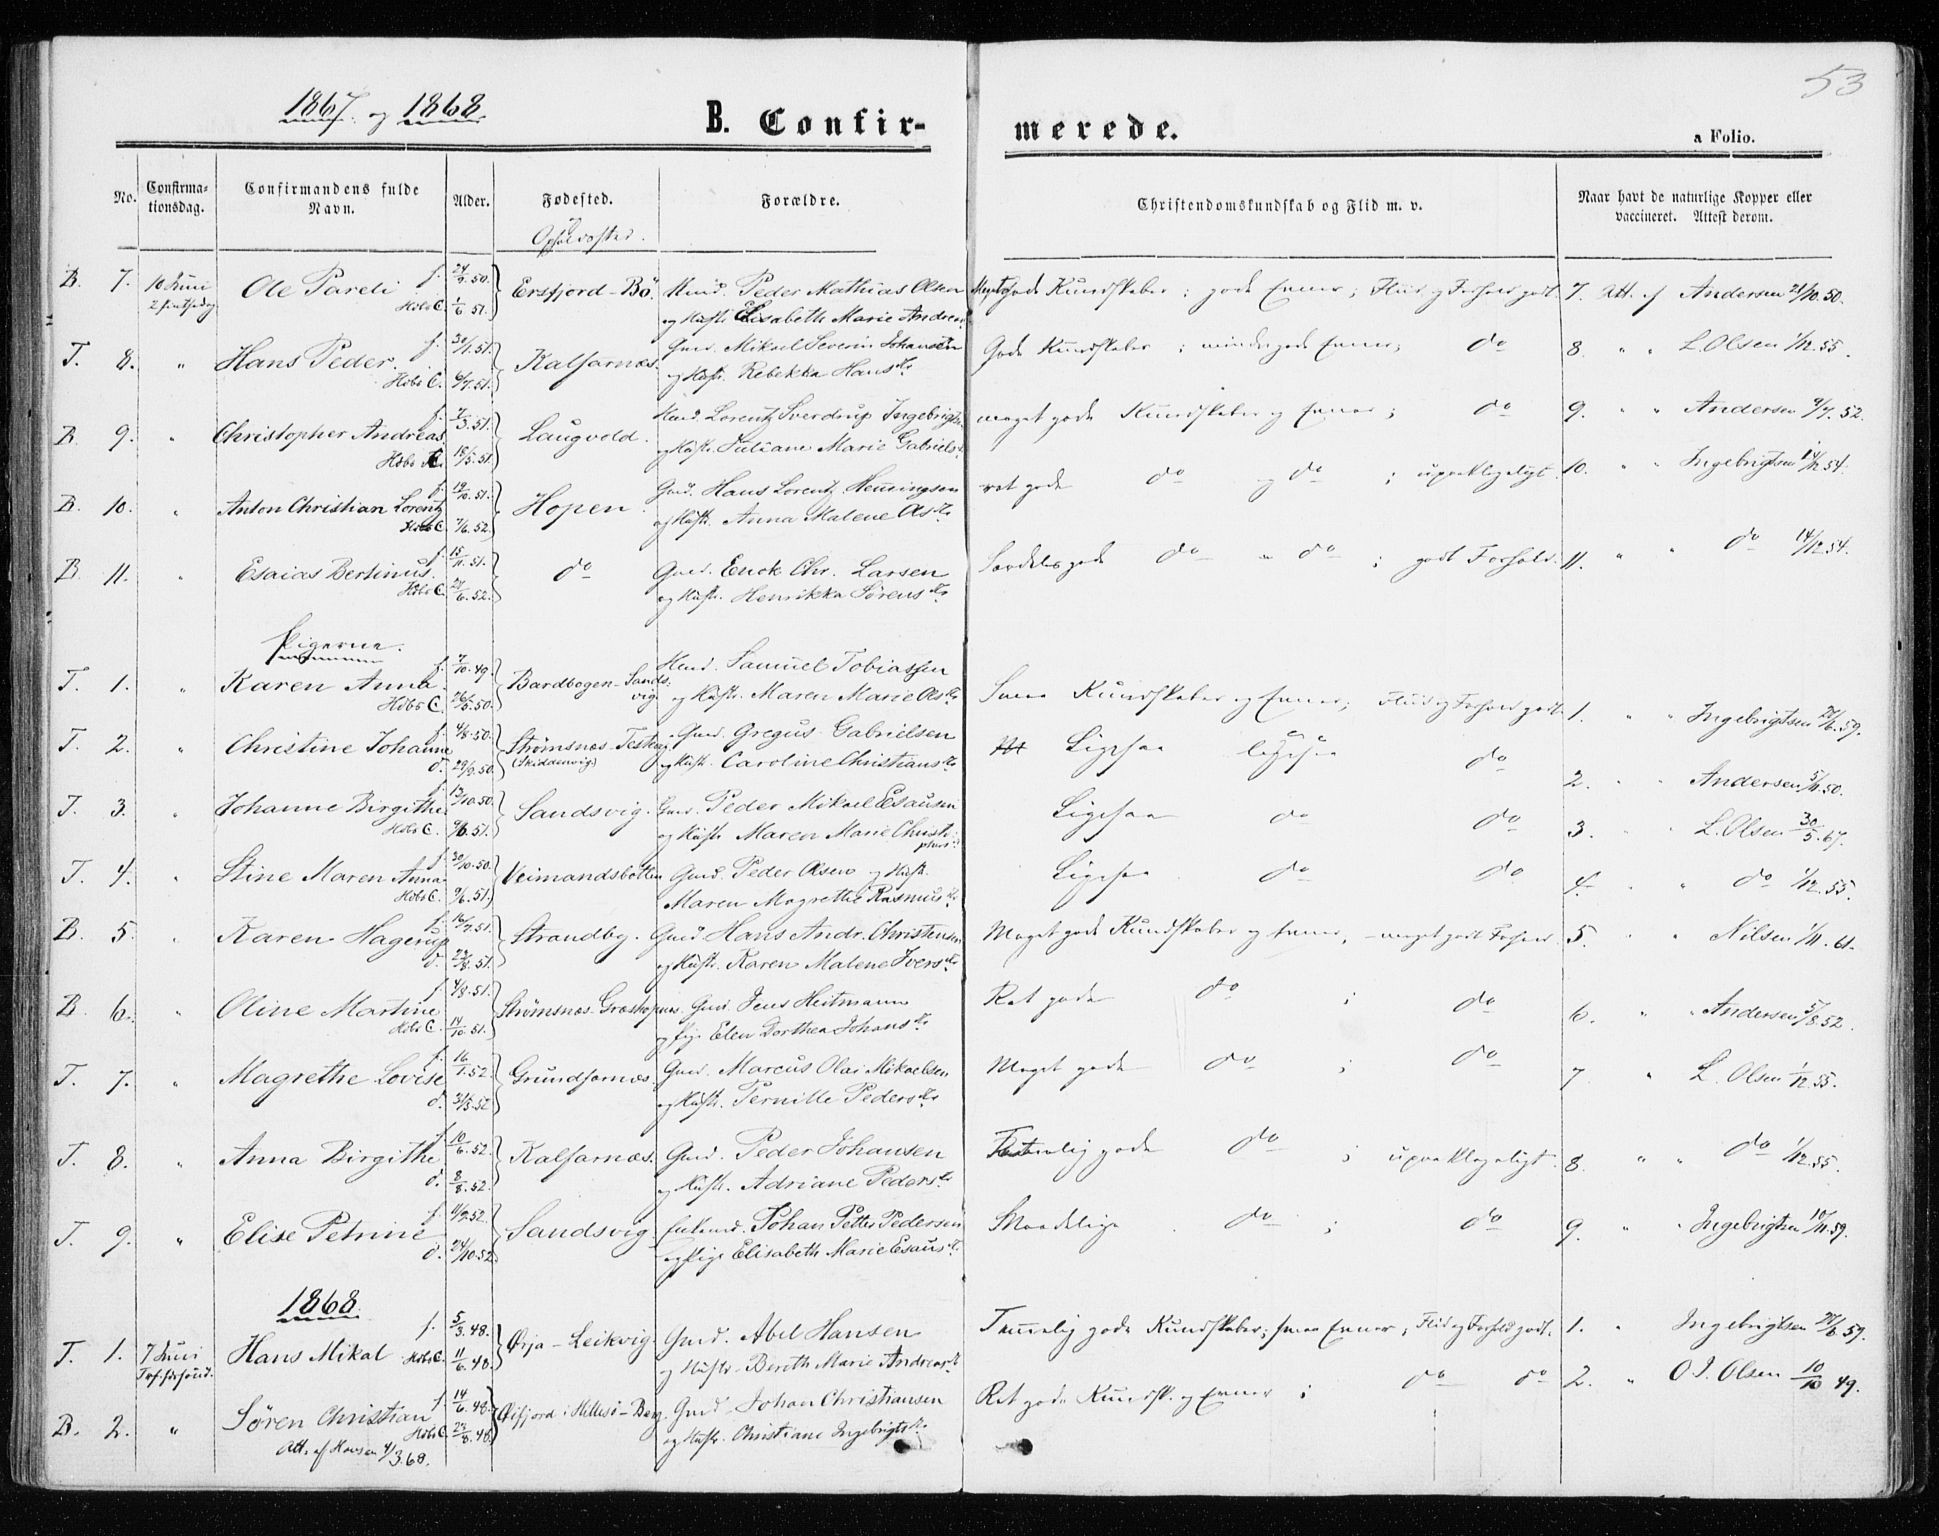 53
1867 og 1868
B. Confirmerede.
a Folio.
No. Confirmationsdag. Confirmandens fulde Navn. Alder. Fødested. Forældre. Christendomskundskab og Flid m. v. Naar havt de naturlige Kopper eller vaccineret. Attest derom.
Opholdssted.
B. 7. 10 Juni Ole Pareli f. 24/9.50. Ersfjord-Bö. Peder Mathias Olsen Meget gode Kundskaber; gode Evner; Flid og Forhold godt. 7. Att. af Andersen 21/10.50.
2 pintsedag Höbs C. 1/6 51. og Hustr. Elisabeth Marie Andreas
T. 8. " Hans Peder. f. 30/1.51. Kalfarnæs. Gmd. Mikael Severin Johansen Gode Kundskaber; mindre gode Evner; do 8. " " L. Olsen 1/12.55.
Höbs C. 6/7.51. og Hustr. Rebekka Hans dtr
B. 9. " Christopher Andreas f. 7/3.51. Laugvold. Lorentz Sverdrup Ingebrigts. meget gode Kundskaber og Evner; do 9. " " Andersen 9/7.52.
Höbs C. 18/5.51. og Hustr. Juliane Marie Gabriels.
B. 10. " Anton Christian Lorentz f. 19/10.51. Hopen Gmd. Hans Lorentz Henningsen ret gode do og do; upaaklageligt. 10. " " Ingebrigtsen 14/12.54.
Höbs C. 7/6.52. og Hustr. Anna Malene Ols dtr
B. 11. " Esaias Bertinus. f. 15/11.51. do Gmd. Enok Chr. Larsen Særdeles gode do " do; godt Forhold. 11. " " do 14/12.54.
Höbs C. 27/6.52. og Hustr. Henrikka Sörens dtr
Pigerne.
T. 1. " Karen Anna f. 7/10.49. Bardbogen-Sandsvig. Samuel Tobiassen Smaa Kundskaber og Evner; Flid og Forhold godt. 1. " " Ingebrigtsen 24/6.59.
Höbs C. 26/5.50. og Hustr. Maren Marie Ols dtr
T. 2. " Christine Johanne f. 4/8.50. Strømsnæs- Gmd. Gregus Gabrielsen Ligesaa ligesaa do 2. " " Andersen 5/11.50.
d. 29/9.50. (Skiddenvig) og Hustr. Caroline Christians dtr
T. 3. " Johanne Birgithe f. 13/10.50. Sandsvig. Gmd. Peder Mikael Esausen Ligesaa do do 3. " " L. Olsen 30/5.67.
Höbs C. 9/6.51. og Hustr. Maren Marie Christophers d.
T. 4. " Stine Maren Anna f. 30/10.50. Veimandsbotten Gmd. Peder Olsen og Hustr. Ligesaa do do 4. " " do 1/12.55.
Höbs C. 9/6.51. Maren Magrethe Rasmus dtr
B. 5. " Karen Hagerup f. 16/7.51. Strandby. Gmd Hans Andr. Christensen Meget gode Kundskaber og Evner, - meget godt Forhold 5. " " Nilsen 1/11.61.
d. 24/8.51. og Hustr. Karen Malene Ivers dtr
B. 6. " Oline Martine f. 4/8.51. Strømsnæs-Græskopen. Gmd. Jens Heitmann Ret gode do ; do 6. " " Andersen 5/8.52.
Höbs C. 14/10.51. og Pige Elen Dorthea Johans dtr
T. 7. " Magrethe Lovise f. 16/1.52. Grundfarnæs. Gmd. Marcus Olai Mikaelsen Meget gode do ; do 7 " L. Olsen 1/12.55.
d. 31/5.52 og Hustr. Pernille Peders dtr
T. 8. " Anna Birgithe f. 10/6.52. Kalfarnæs. Gmd. Peder Johansen Temmelig gode do ; upaaklageligt. 8. " " do 1/12.55.
d. 8/8.52. og Hustr. Adriane Peders dtr
T. 9. " Elise Petrine f. 11/9.52. Sandsvig Enkemd. Johan Petter Pedersen Maadelige do ; do 9. " " Ingebrigtsen 10/11.59.
d. 24/10.52. og Pige Elisabeth Marie Esaus d.
1868.
T. 1. 7 Juni Hans Mikal f. 5/3.48. Ørja-Leikvig. Gmd. Abel Hansen Temmelig gode Kundskaber; smaa Evner; Flid og Forhold godt. 1. " Ingebrigtsen 24/6.59.
Höbs C. 11/6.48. og Hustr. Bereth Marie Andreas d.
B. 2. " Sören Christian f. 14/6.48. Øifjord i Hillesö-Berg. Gmd. Johan Christiansen Ret gode Kundsk. og Evner ; do do 2. " O. J. Olsen 10/10 49.
Höbs C. 27/8.48. og Hustr. Christiane Ingebrigts dtr
Att. af Hansen 4/3.68.